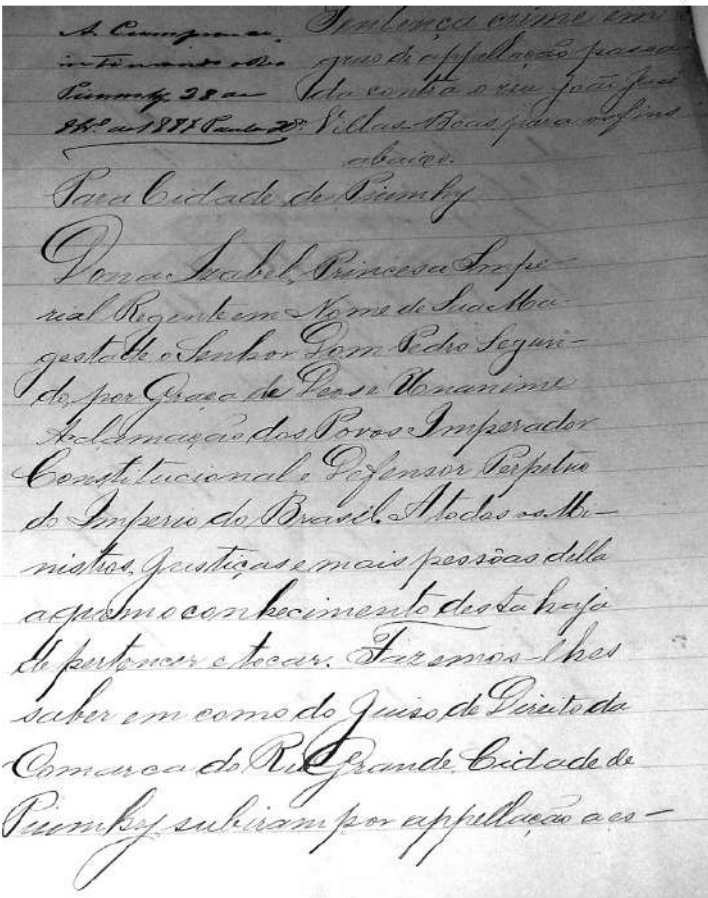 A. Cumpra-se,
intimando o Réo
Piumhy 28 de
de 1887 Paula
Sentença crime em
grao de appellação passa
da contra o réu João José
Villas Boas para os fins
abaixo.
Para Cidade de Piumhy
Dona Izabel, Princesa Impe-
rial Regente em Nome de Sua Ma-
gestade o Senhor Dom Pedro Segun-
do, por Graça de Deos e Unanime
Aclamação dos Povos Imperador
Constitucional e Defensor Perpetuo
do Imperio do Brasil. A todos os Mi-
nistros, Justiças e mais pessôas della
a quem o conhecimento desta haja
de pertencer e tocar. Fazemos-lhes
saber em como do Juiso de Direito da
Comarca do Rio Grande, Cidade de
Piumhy subiram por appellação a es-